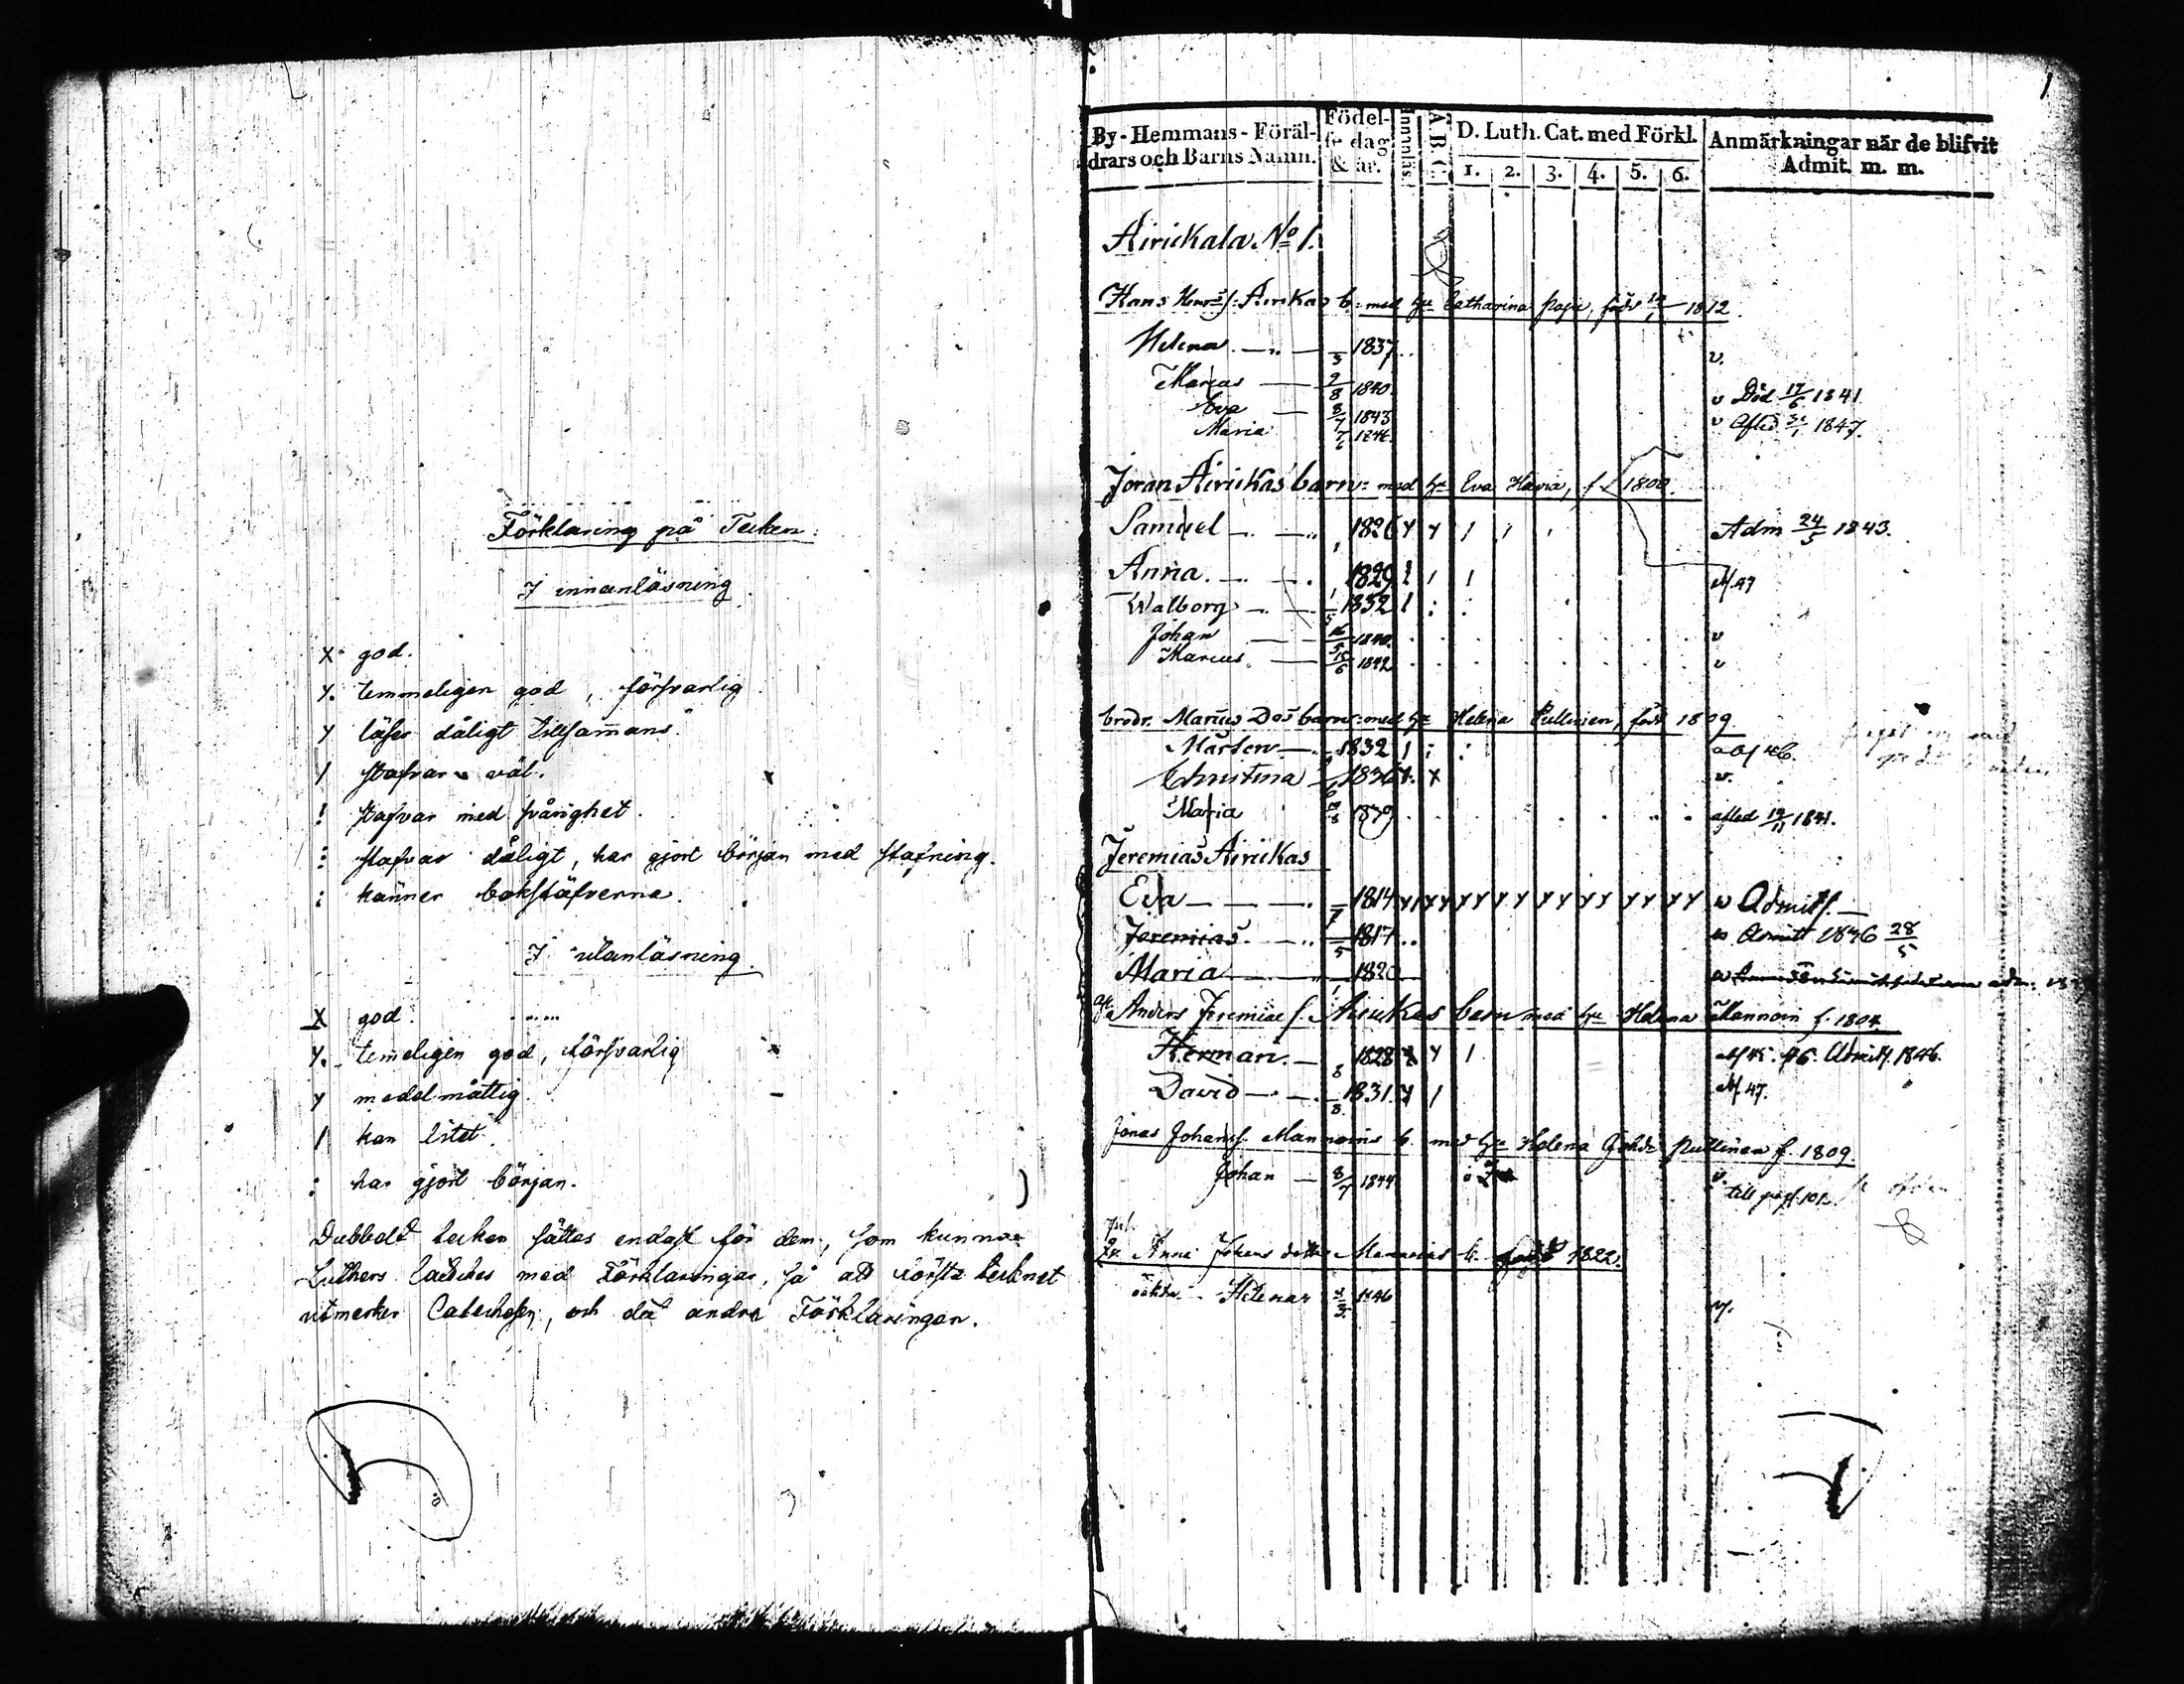 Förklaring på Tecken:
I innanläsning
X god.
Y. temmeligen god, försvarlig
Y läser dåligt tillsam̄ans.
/ stafvar väl.
! stafvar med svårighet.
⋮ stafvar dåligt, har gjort början med stafning.
: känner bokstäfverna.
I utanläsning.
X god.
Y. tem̄eligen god, försvarlig
Y medelmåttig.
/ kan litet.
: har gjort början.
Dubbelt tecken sättes endast för dem, som kunna
Luthers Catches med Förklaringar, så att första tecknet
utmerker Catechesen, och det andra Förklaringen.
1
By-Hemmans-Föräl-drars och Barns Namn. Födel-se dag & år. Innanläs. A B C. D. Luth. Cat. med Förkl. 1. 2. 3. 4. 5. 6. Anmärkningar när de blifvit Admit. m. m.
Airickala No 1.
Hans Airikas b: med Catharina född 1812
Helena 1837 v.
Marcus 2/8 1840 v Död 17/6 1841
Eva 8/7 1843 v Afled 1847.
Maria
Joran Airickas barn: med Eva Havia, f. 1800.
Samuel 1826 Y Y / / / Adm 24/5 1843.
Anna 1829 ! / / 47
Walborg 1832 ! : :
Johan 1840 v
Marcus 1842 v
brodr. Marcus barn: med Helena Pullinen, född 1809
Mårten 1832 / : : 46.
Christina 1836 Y. X v.
Maria 1839 afled 1841.
Jeremias Airickas
Eva 1814 Y Y Y Y Y Y Y Y Y Y Y Y Y Y w Admitt.
Jeremias 1817 w Admitt 1836 28/5
Maria 1820 w
Anders Jeremiae s. Airickas barn med Helena Mannoin f. 1804
Herman 1828 Y / 45. 46. Admitt. 1846.
David 1831. Y / 47.
Jonas Johans. Mannoins b. med Helena Pullinen f. 1809.
Johan 8/7 1844 v. till 101.
Anna Johans Mannoins b. född 1822.
Helena 1846 v.